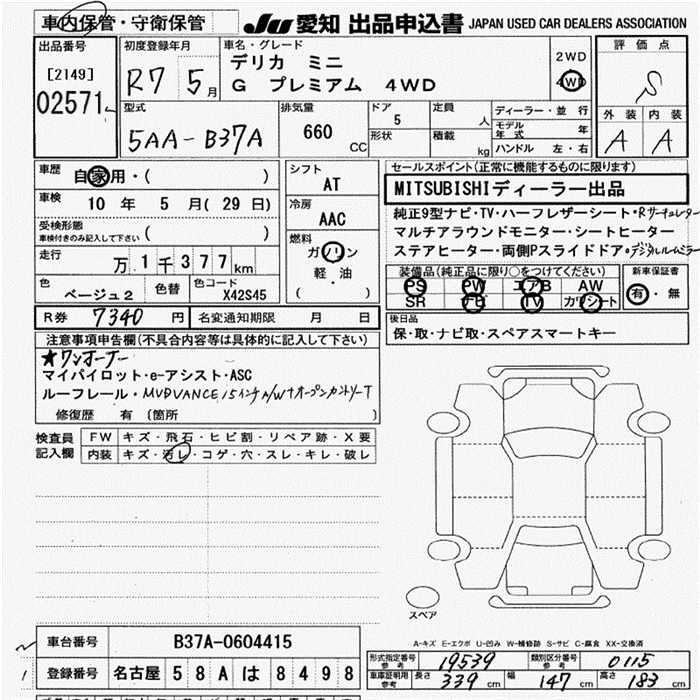 車内保管・守衛保管
JU 愛知 出品申込書 JAPAN USED CAR DEALERS ASSOCIATION
出品番号
[2149]
02571
初度登録年月
R7 5月
車名・グレード
デリカ ミニ
G プレミアム 4WD
2WD
4WD
評価点
S
外装 内装
A A
型式
5AA-B37A
排気量
660
CC
ドア
5
形状
定員
人
積載
kg
ディーラー・並行
モデル年式 年
ハンドル 左・右
車歴
自家用・( )
車検
10 年 5 月 (29 日)
受検形態
車検付きのみ記入して下さい ( )
走行
万 1千377km
色
ベージュ2
色替
色コード
X42S45
シフト
AT
冷房
AAC
燃料
ガソリン
軽・油
( )
セールスポイント(正常に機能するものに限ります)
MITSUBISHIディーラー出品
純正9型ナビ・TV・ハーフレザーシート・Rサーキュレター
マルチアラウンドモニター・シートヒーター
ステアヒーター・両側Pスライドドア・デジタルルームミラー
装備品(純正品に限り○をつけてください)
PS PW エアB AW
SR ナビ TV カワシート
新車保証書
有・無
R券 7340 円
名変通知期限 月 日
後日品
保・取・ナビ取・スペアスマートキー
注意事項申告欄(不具合内容等は具体的に記入して下さい)
★ワンオーナー
マイパイロット・e-アシスト・ASC
ルーフレール・MVDVANCE15インチA/W+オープンカントリーT
修復歴 有 (箇所 )
検査員記入欄
FW キズ・飛石・ヒビ割・リペア跡・X要
内装 キズ・汚レ・コゲ・穴・スレ・キレ・破レ
スペア
A-キズ E-エクボ U-凹み W-補修跡 S-サビ C-腐食 XX-交換済
車台番号 B37A-0604415
登録番号 名古屋 58A は 8498
形式指定番号 参考 19539
類別区分番号 参考 0115
車庫証明用 参考 長さ 339 cm 幅 147 cm 高さ 183 cm